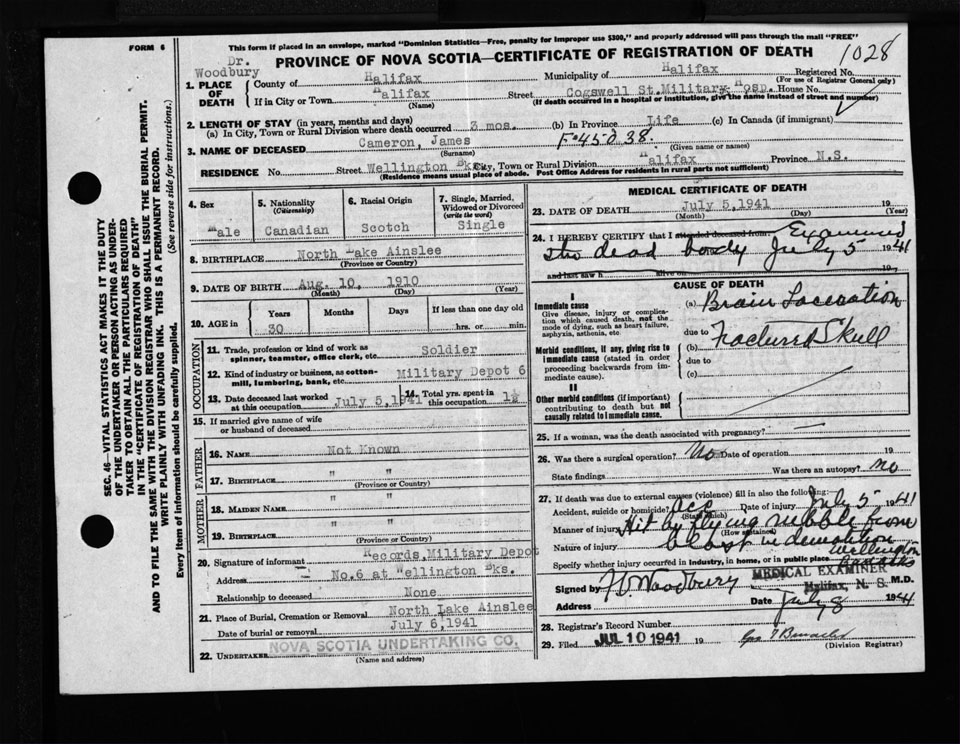 FORM 6
This form if placed in an envelope, marked "Dominion Statistics—Free, penalty for improper use $300," and properly addressed will pass through the mail "FREE"
PROVINCE OF NOVA SCOTIA—CERTIFICATE OF REGISTRATION OF DEATH
1028
Dr.
Woodbury
1. PLACE OF DEATH
County of Halifax Municipality of Halifax Registered No.
(For use of Registrar General only)
If in City or Town Halifax Street Cogswell St.Military Hosp. House No.
(Name) (If death occurred in a hospital or institution, give the name instead of street and number)
2. LENGTH OF STAY (in years, months and days)
(a) In City, Town or Rural Division where death occurred 3 mos. (b) In Province Life (c) In Canada (if immigrant)
3. NAME OF DECEASED Cameron, James F.45038.
(Surname) (Given name or names)
RESIDENCE No. Street Wellington Bks. City, Town or Rural Division Halifax Province N.S.
(Residence means usual place of abode. Post Office Address for residents in rural parts not sufficient)
SEC. 46—VITAL STATISTICS ACT MAKES IT THE DUTY
OF THE UNDERTAKER OR PERSON ACTING AS UNDER-
TAKER TO OBTAIN ALL THE PARTICULARS REQUIRED
IN THE "CERTIFICATE OF REGISTRATION OF DEATH"
AND TO FILE THE SAME WITH THE DIVISION REGISTRAR WHO SHALL ISSUE THE BURIAL PERMIT.
WRITE PLAINLY WITH UNFADING INK. THIS IS A PERMANENT RECORD.
(See reverse side for instructions.)
Every item of information should be carefully supplied.
4. Sex
Male
5. Nationality
(Citizenship)
Canadian
6. Racial Origin
Scotch
7. Single, Married,
Widowed or Divorced
(write the word)
Single
8. BIRTHPLACE North Lake Ainslee
(Province or Country)
9. DATE OF BIRTH Aug. 10, 1910
(Month) (Day) (Year)
10. AGE in Years Months Days If less than one day old
30 hrs. or min.
OCCUPATION
11. Trade, profession or kind of work as
spinner, teamster, office clerk, etc. Soldier
12. Kind of industry or business, as cotton-
mill, lumbering, bank, etc. Military Depot 6
13. Date deceased last worked
at this occupation July 5,1941
14. Total yrs. spent in
this occupation 1½
15. If married give name of wife
or husband of deceased
FATHER
16. Name Not Known
17. Birthplace " "
(Province or Country)
MOTHER
18. Maiden Name " "
19. Birthplace " "
(Province or Country)
20. Signature of informant Records,Military Depot
Address No.6 at Wellington Bks.
Relationship to deceased None
21. Place of Burial, Cremation or Removal North Lake Ainslee
Date of burial or removal July 6,1941
22. Undertaker NOVA SCOTIA UNDERTAKING CO.
(Name and address)
MEDICAL CERTIFICATE OF DEATH
23. DATE OF DEATH July 5,1941 19
(Month) (Day) (Year)
24. I HEREBY CERTIFY that I attended deceased from: Examined
the dead body July 5 1941
and last saw h alive on 19
CAUSE OF DEATH
I
Immediate cause
Give disease, injury or complica-
tion which caused death, not the
mode of dying, such as heart failure,
asphyxia, asthenia, etc.
(a) Brain Laceration
due to
Morbid conditions, if any, giving rise to
immediate cause (stated in order
proceeding backwards from im-
mediate cause).
(b) Fractured Skull
due to
(c)
II
Other morbid conditions (if important)
contributing to death but not
causally related to immediate cause.
25. If a woman, was the death associated with pregnancy? —
26. Was there a surgical operation? No Date of operation 19
State findings Was there an autopsy? no
27. If death was due to external causes (violence) fill in also the following:
Accident, suicide or homicide? acc Date of injury July 5 1941
(State which)
Manner of injury Hit by flying rubble from
(How sustained)
Nature of injury blast in demolition
Wellington
Specify whether injury occurred in industry, in home, or in public place Barracks
MEDICAL EXAMINER
Halifax, N. S.
Signed by F.V. Woodbury M.D.
Address Date July 8 1941
28. Registrar's Record Number
29. Filed JUL 10 1941 19
(Division Registrar)